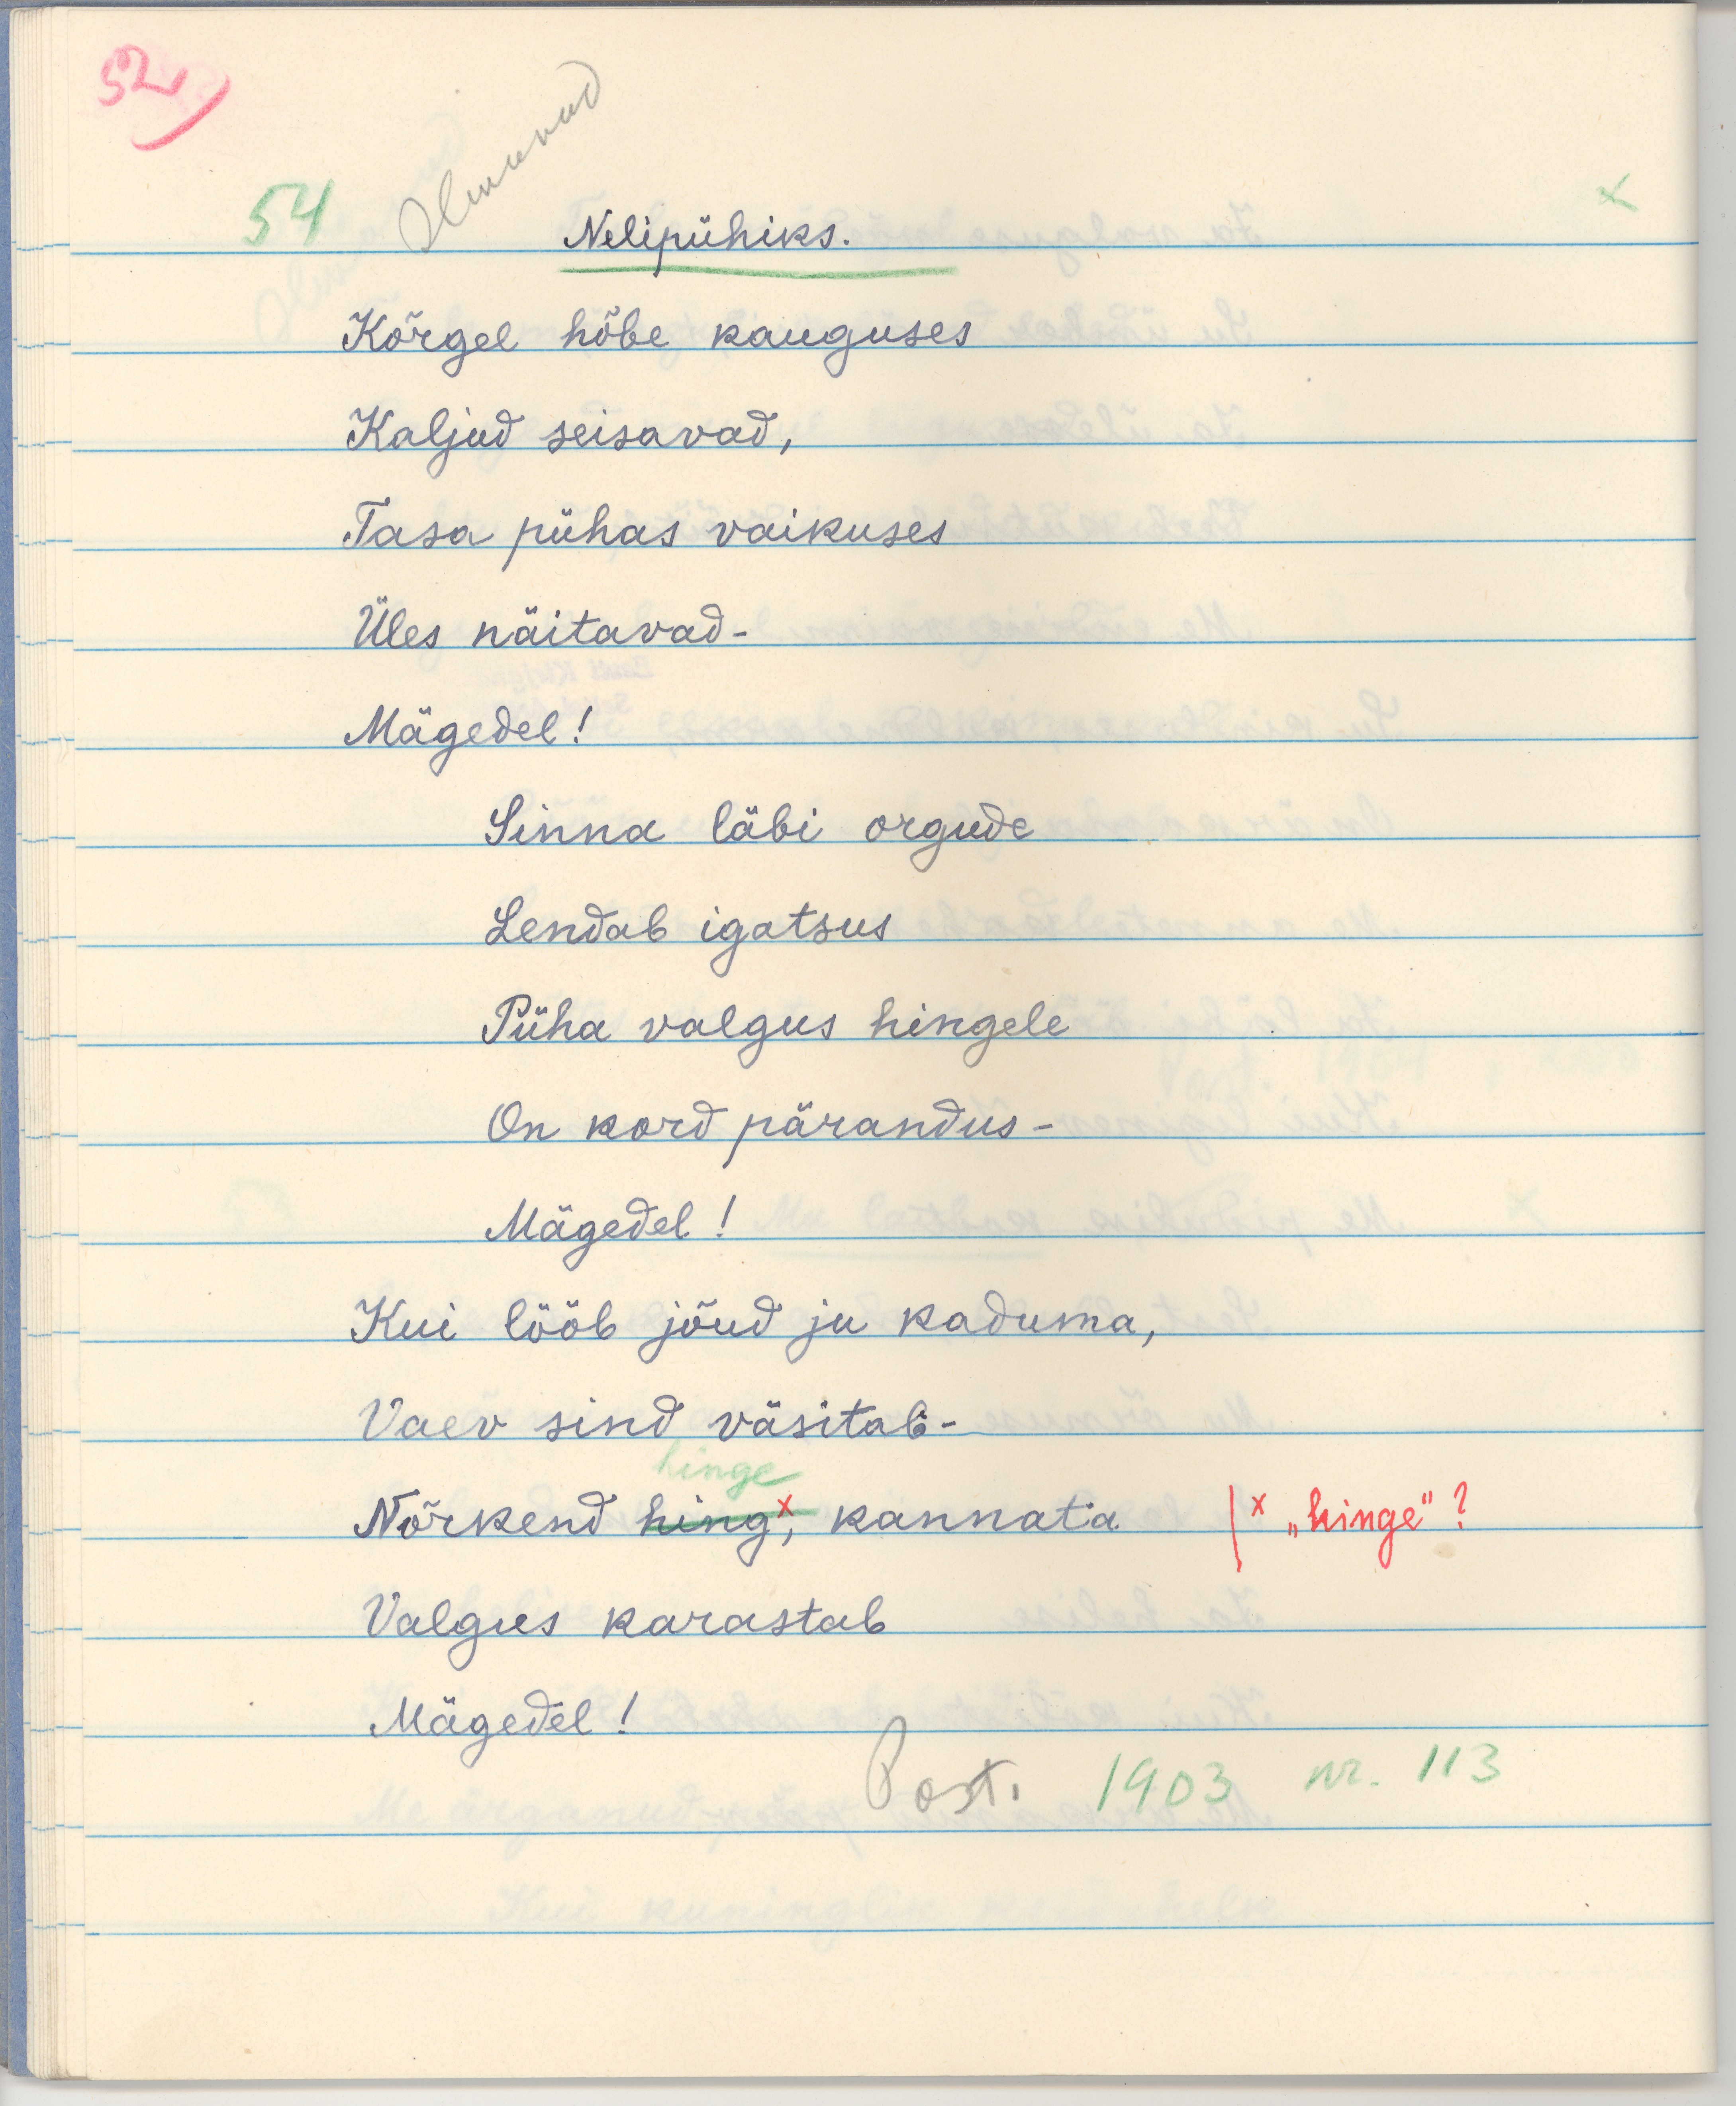 52)
Ilmunud
54 x
Nelipühiks.
Kõrgel hõbe kauguses
Kaljud seisavad,
Tasa pühas vaikuses
Üles näitavad-
Mägedel!
Sinna läbi orgude
Lendab igatsus
Püha valgus hingele
On kord pärandus-
Mägedel!
Kui lööb jõud ju kaduma,
Vaev sind väsitab-
hinge
Nõrkend hing,x kannata | x „hinge" ?
Valgus karastab
Mägedel!
Post. 1903 nr. 113